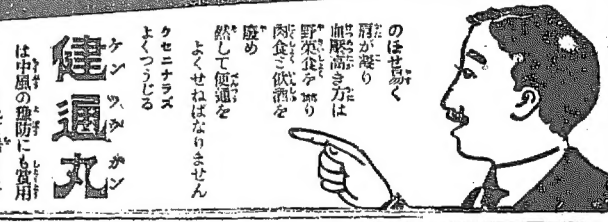 のぼせ易く
肩が凝り
血壓高き方は
野菜食を摂り
肉食と飲酒を
廢め
然して便通を
よくせねばなりません
クセニナラズ
よくつうじる
健通丸
ケンツウガン
は中風の豫防にも賞用